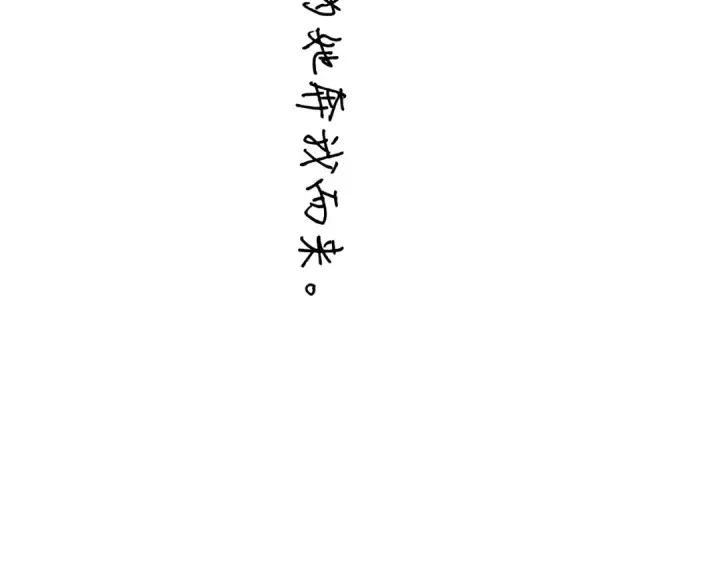 她奔放而来。